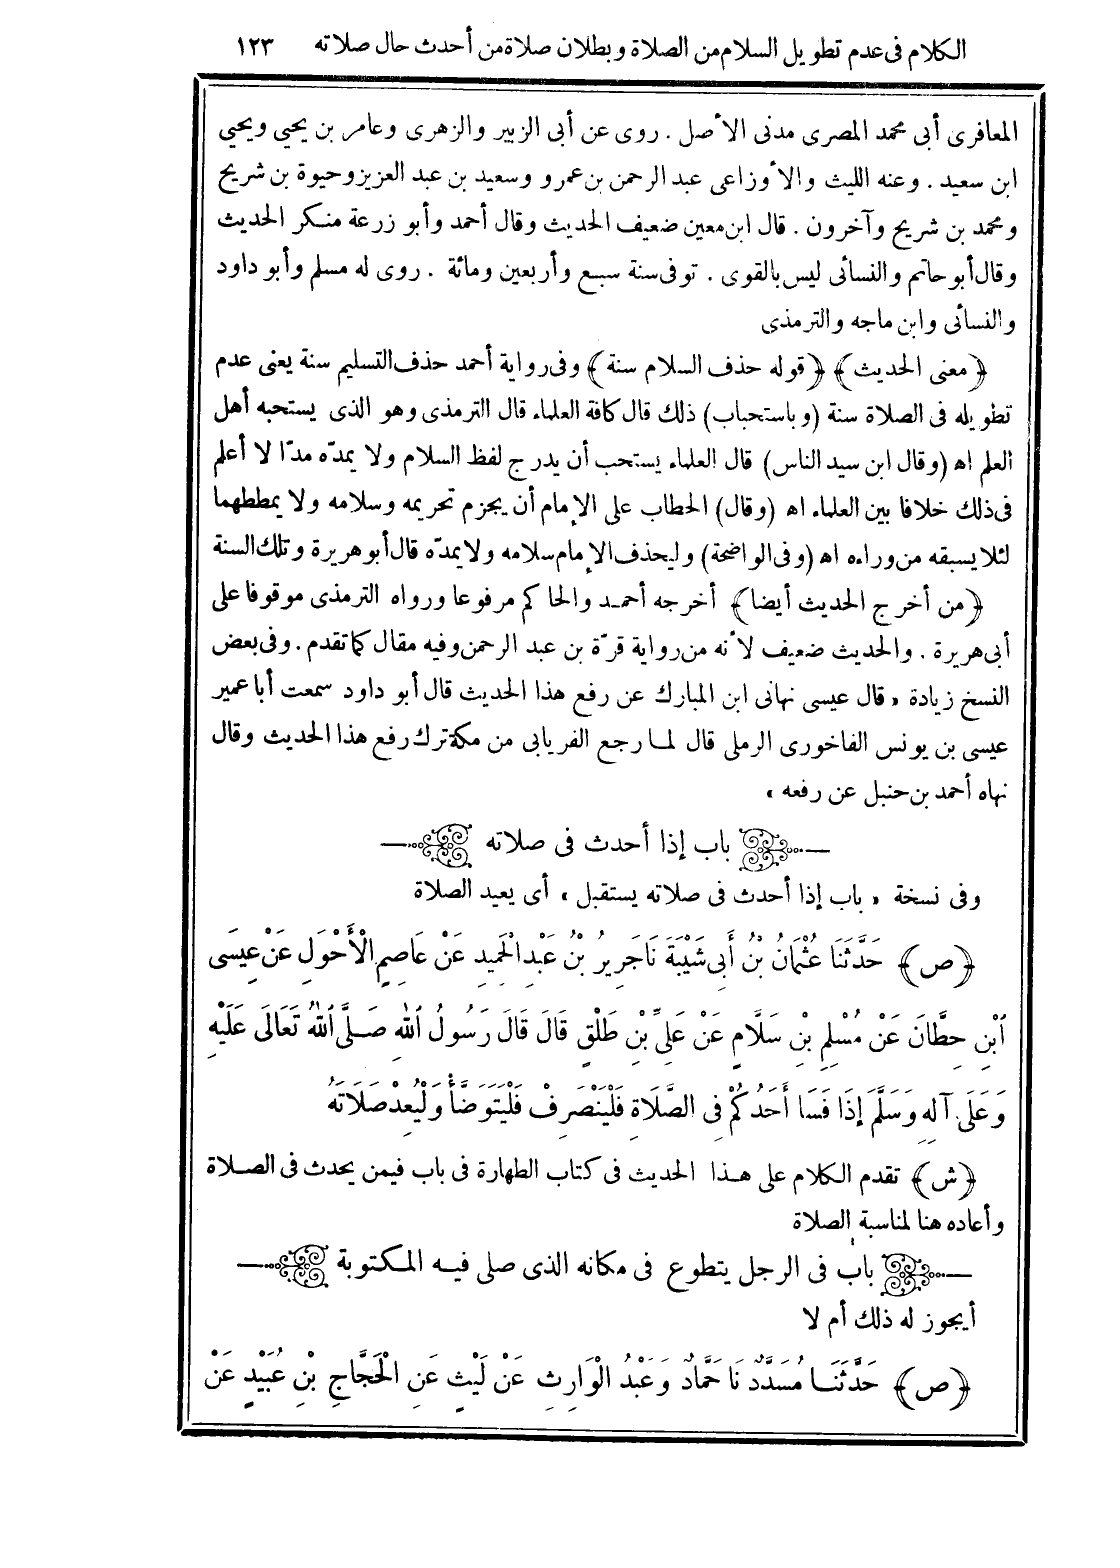 الكلام فى عدم تطويل السلام من الصلاة وبطلان صلاة من أحدث حال صلاته ١٢٣
المعافرى أبى محمد المصرى مدنى الأصل . روى عن أبى الزبير والزهرى وعامر بن يحيى ويحيى
ابن سعيد . وعنه الليث والأوزاعى عبد الرحمن بن عمرو وسعيد بن عبد العزيز وحيوة بن شريح
ومحمد بن شريح وآخرون . قال ابن معين ضعيف الحديث وقال أحمد وأبو زرعة منكر الحديث
وقال أبو حاتم والنسائى ليس بالقوى . توفى سنة سبع وأربعين ومائة . روى له مسلم وأبو داود
والنسائى وابن ماجه والترمذى
﴿معنى الحديث﴾ ﴿قوله حذف السلام سنة﴾ وفى رواية أحمد حذف التسليم سنة يعنى عدم
تطويله فى الصلاة سنة (وباستحباب) ذلك قال كافة العلماء قال الترمذى وهو الذى يستحبه أهل
العلم اه (وقال ابن سيد الناس) قال العلماء يستحب أن يدرج لفظ السلام ولا يمدّه مدّا لا أعلم
فى ذلك خلافا بين العلماء اه (وقال) الحطاب على الإمام أن يجزم تحريمه وسلامه ولا يمططهما
لئلا يسبقه من وراءه اه (وفى الواضحة) وليحذف الإمام سلامه ولا يمدّه قال أبو هريرة وتلك السنة
﴿من أخرج الحديث أيضا﴾ أخرجه أحمد والحاكم مرفوعا ورواه الترمذى موقوفا على
أبى هريرة . والحديث ضعيف لأنه من رواية قرّة بن عبد الرحمن وفيه مقال كما تقدم . وفى بعض
النسخ زيادة « قال عيسى نهانى ابن المبارك عن رفع هذا الحديث قال أبو داود سمعت أبا عمير
عيسى بن يونس الفاخورى الرملى قال لما رجع الفريابى من مكة ترك رفع هذا الحديث وقال
نهاه أحمد بن حنبل عن رفعه »
باب إذا أحدث فى صلاته
وفى نسخة « باب إذا أحدث فى صلاته يستقبل » أى يعيد الصلاة
﴿ص﴾ حَدَّثَنَا عُثْمَانُ بْنُ أَبِى شَيْبَةَ نَا جَرِيرُ بْنُ عَبْدِ الْحَمِيدِ عَنْ عَاصِمٍ الْأَحْوَلِ عَنْ عِيسَى
ابْنِ حِطَّانَ عَنْ مُسْلِمِ بْنِ سَلَّامٍ عَنْ عَلِىِّ بْنِ طَلْقٍ قَالَ قَالَ رَسُولُ اللهِ صَلَّى اللهُ تَعَالَى عَلَيْهِ
وَعَلَى آلِهِ وَسَلَّمَ إِذَا فَسَا أَحَدُكُمْ فِى الصَّلَاةِ فَلْيَنْصَرِفْ فَلْيَتَوَضَّأْ وَلْيُعِدْ صَلَاتَهُ
﴿ش﴾ تقدم الكلام على هذا الحديث فى كتاب الطهارة فى باب فيمن يحدث فى الصلاة
وأعاده هنا لمناسبة الصلاة
باب فى الرجل يتطوع فى مكانه الذى صلى فيه المكتوبة
أيجوز له ذلك أم لا
﴿ص﴾ حَدَّثَنَا مُسَدَّدٌ نَا حَمَّادٌ وَعَبْدُ الْوَارِثِ عَنْ لَيْثٍ عَنِ الْحَجَّاجِ بْنِ عُبَيْدٍ عَنْ